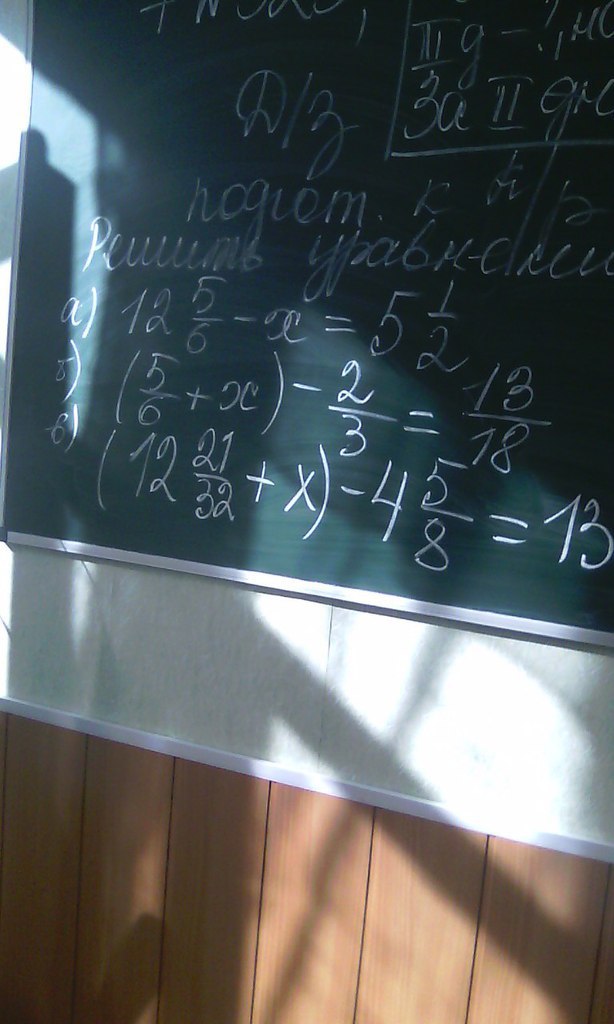 II д - ?, на
3
За II дн
Д/з
подгот. к к/р
Решить уравнени
а) 12 5/6 - x = 5 1/2
б) (5/6 + x) - 2/3 = 13/18
в) (12 21/32 + x) - 4 5/8 = 13